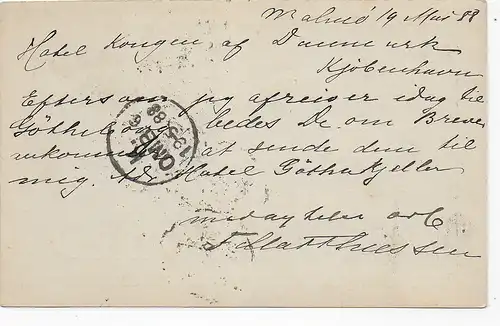 Malmö 19 Mai 88
Hotel Kongen af Danmark
Kjöbenhavn
Eftersom jeg afreiser idag til
Götheborg bedes De om Breve
ankomme at sende dem til
mig. Adr Hotel Götha Kjeller
F Matthiessen
K. OMB. 6
19 5 88